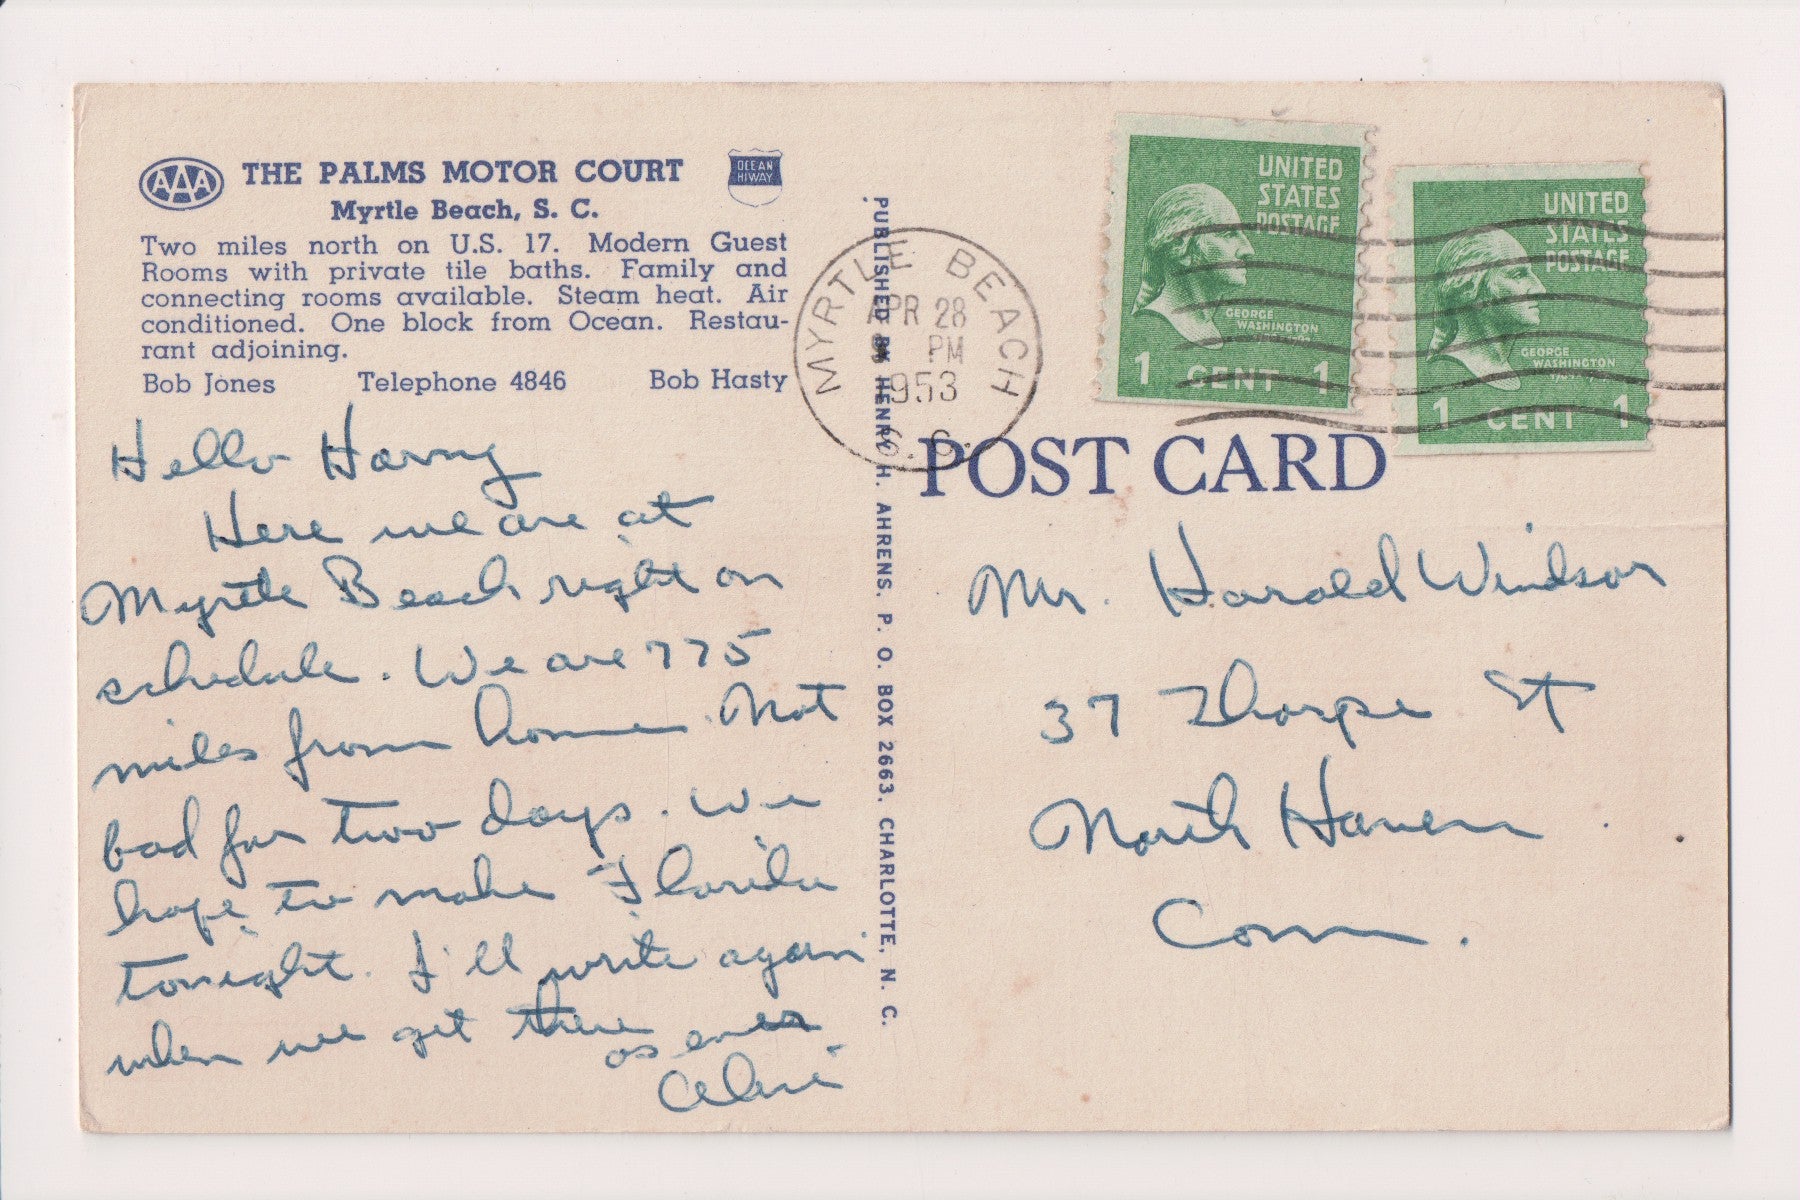 AAA
THE PALMS MOTOR COURT
OCEAN
HIWAY
Myrtle Beach, S. C.
Two miles north on U.S. 17. Modern Guest
Rooms with private tile baths. Family and
connecting rooms available. Steam heat. Air
conditioned. One block from Ocean. Restau-
rant adjoining.
Bob Jones Telephone 4846 Bob Hasty
Hello Harry
Here we are at
Myrtle Beach right on
schedule. We are 775
miles from home. Not
bad for two days. We
hope to make Florida
tonight. I'll write again
when we get there
as ever
PUBLISHED BY HENRY H. AHRENS. P. O. BOX 2663. CHARLOTTE, N. C.
MYRTLE BEACH
APR 28
PM
1953
S. C.
UNITED
STATES
POSTAGE
GEORGE
WASHINGTON
1 CENT 1
UNITED
STATES
POSTAGE
GEORGE
WASHINGTON
1 CENT 1
POST CARD
Mr. Harold Windsor
37 Thorpe St
North Haven
Conn.